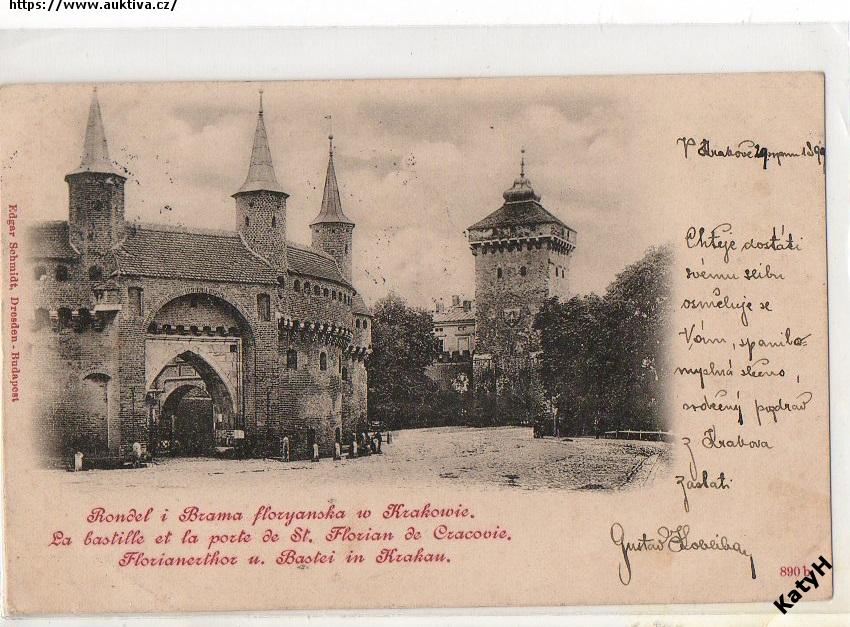 https://www.auktiva.cz/
V Krakově 29 srpnu 1899
Chtěje dostáti
svému slibu
osměluje se
Vám, spanilo-
myslná slečno,
srdečný pozdrav
z Krakova
zaslati
Gustav
Edgar Schmidt, Dresden - Budapest
Rondel i Brama floryanska w Krakowie.
La bastille et la porte de St. Florian de Cracovie.
Florianerthor u. Bastei in Krakau.
890 b
KatyH